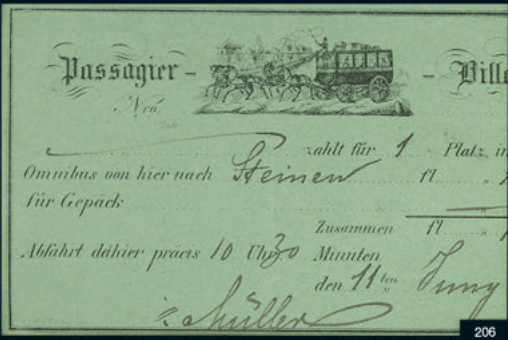 Passagier-
Nro.
zahlt für 1 Platz
Omnibus von hier nach Steinen fl
für Gepäck
Zusammen fl
Abfahrt dahier präcis 10 Uhr 30 Minuten
den 11ten Juny
Müller
206